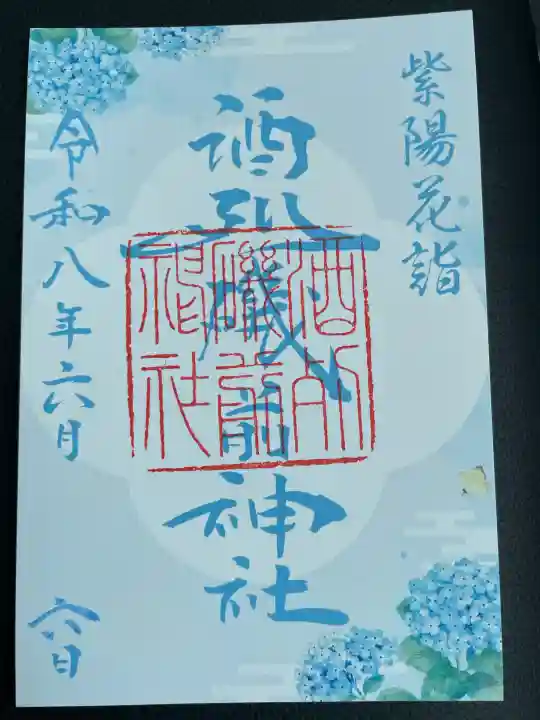 紫陽花詣
酒列磯前神社
酒列
磯前
神社
令和八年六月
六日